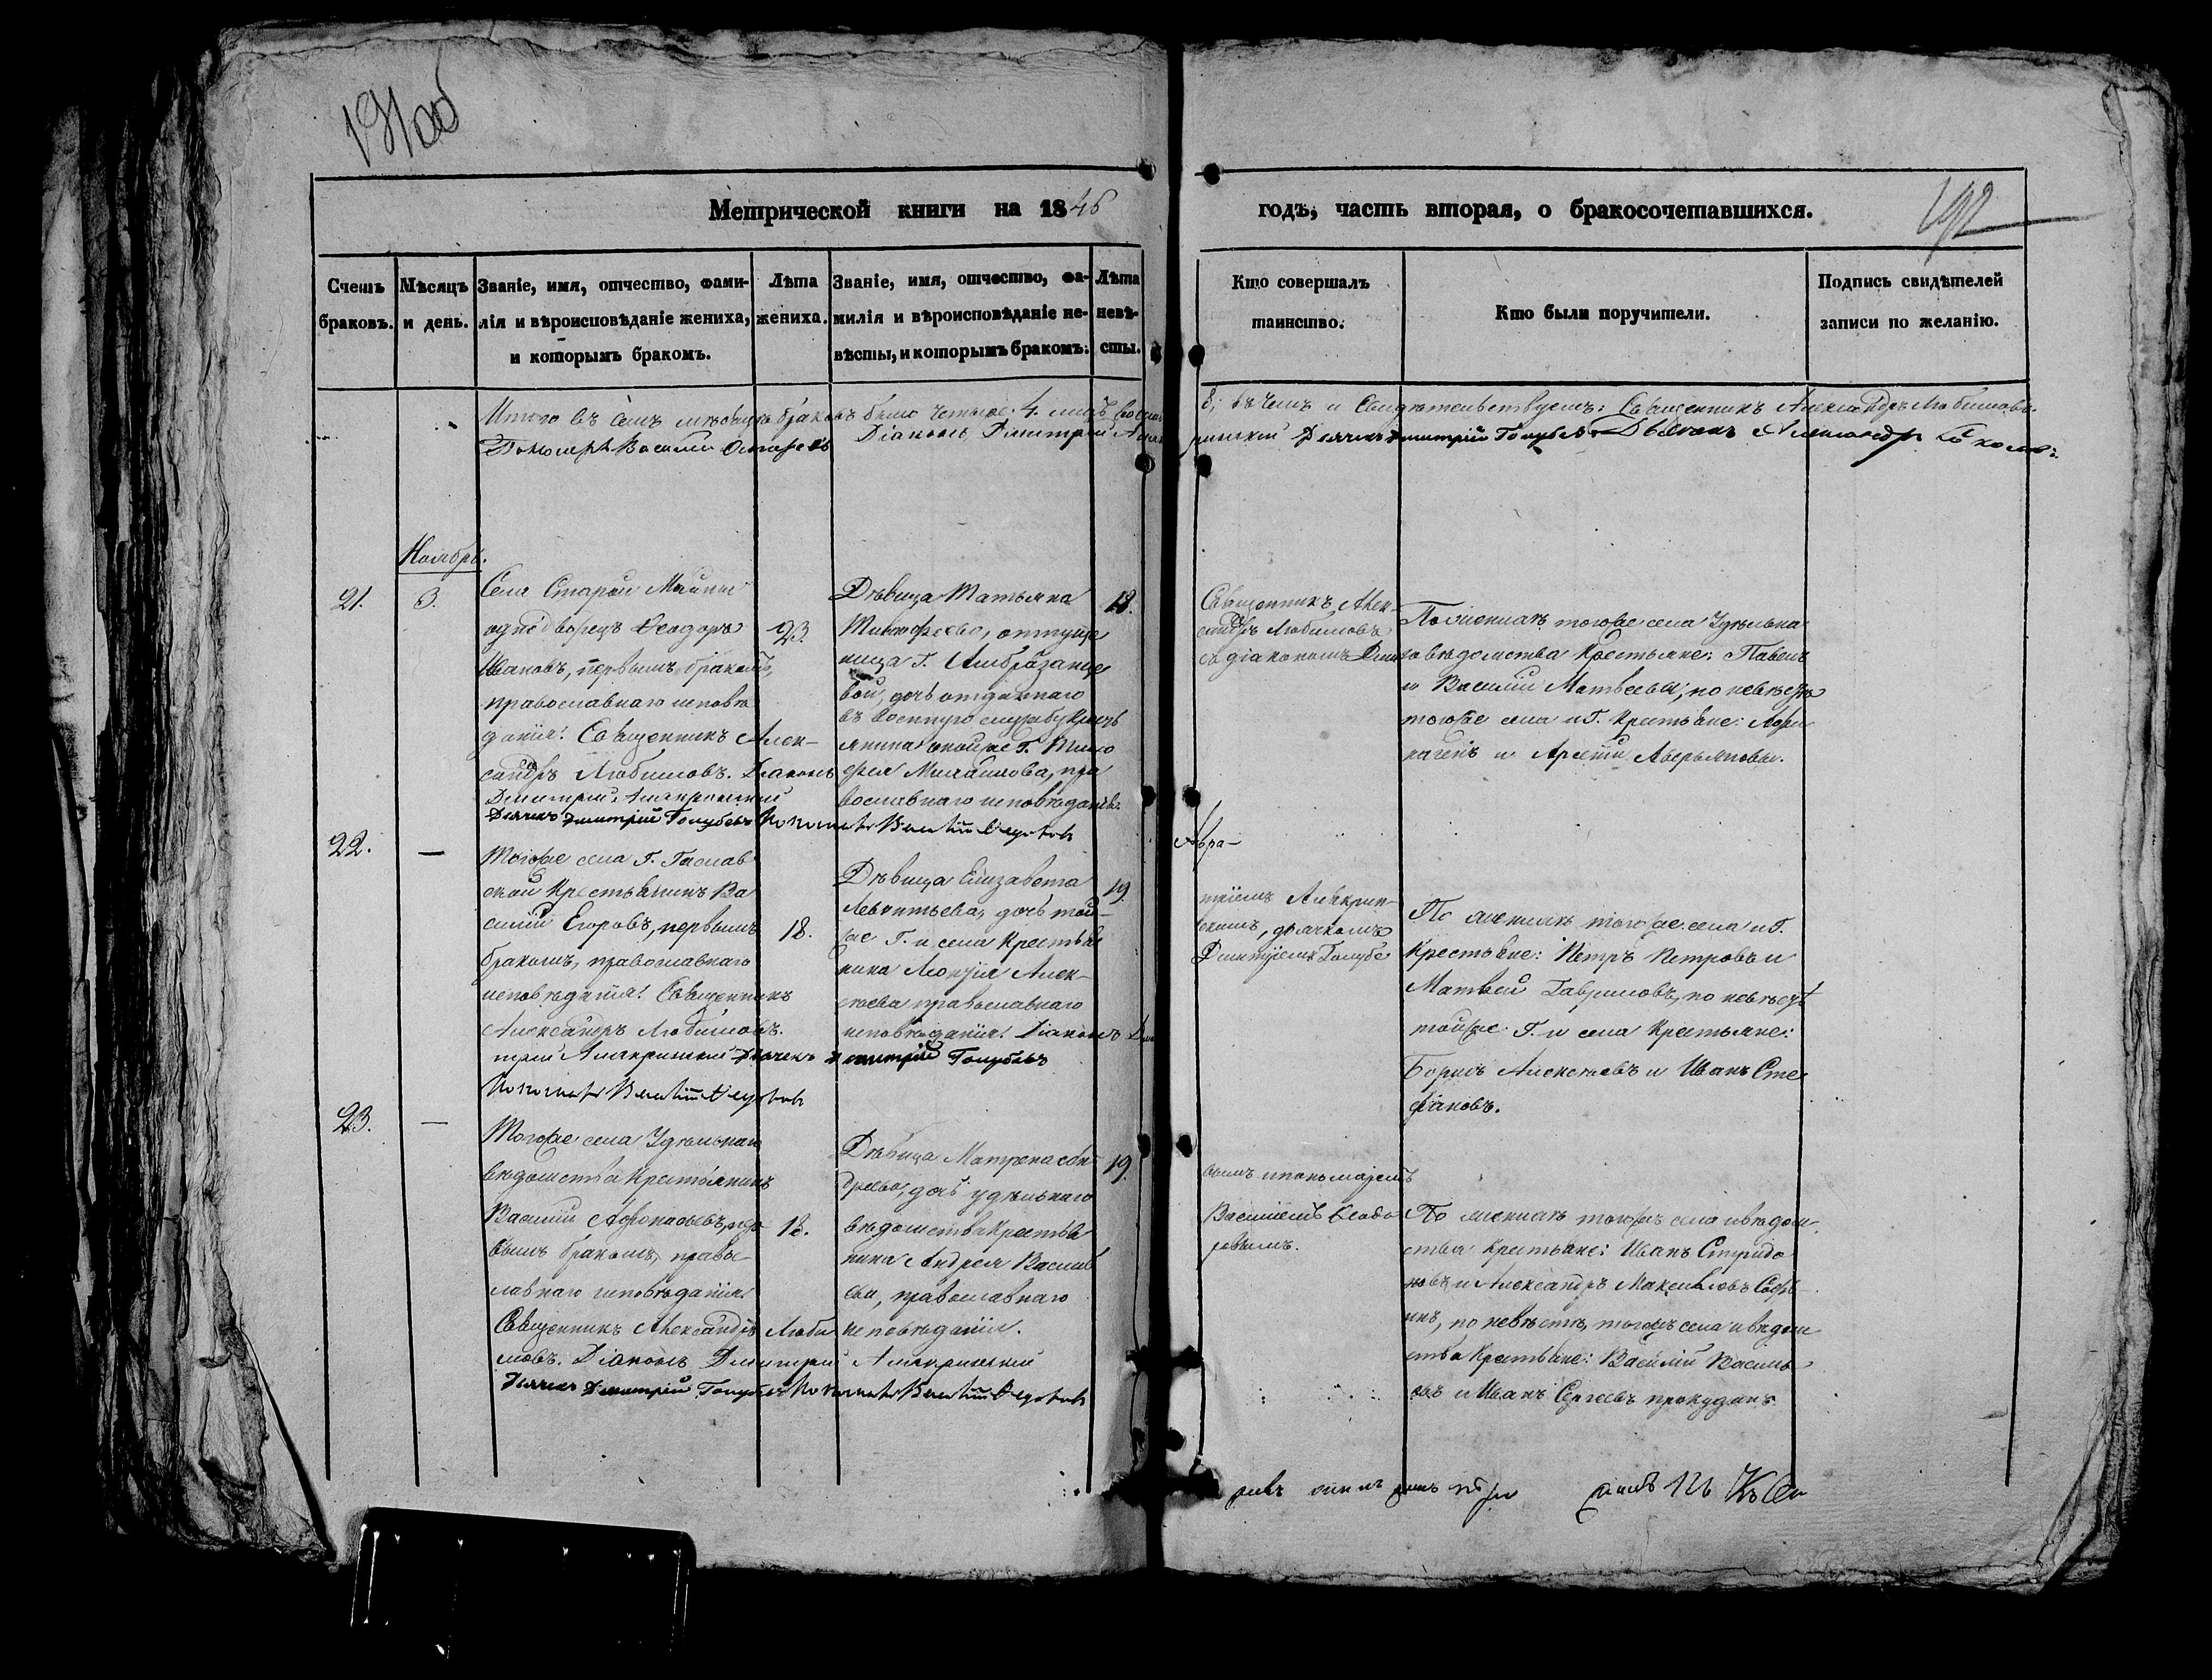 191об
Метрической книги на 1846
годъ, часть вторая, о бракосочетавшихся.
192
Счетъ браковъ.
Мѣсяцъ и день.
Званіе, имя, отчество, фами-
лія и вѣроисповѣданіе жениха,
и которымъ бракомъ.
Лѣта
жениха.
Званіе, имя, отчество, фа-
милія и вѣроисповѣданіе не-
вѣсты, и которымъ бракомъ.
Лѣта
невѣ-
сты.
Кто совершалъ
таинство.
Кто были поручители.
Подпись свидѣтелей
записи по желанію.
Итого въ семъ мѣсяцѣ браковъ было четыре: 4.
въ чемъ и свидѣтельствуемъ: Священникъ Александръ Любимовъ.
Діаконъ Димитрій
Дьячекъ Дмитрій Голубевъ Александр
Пономарь Василій
Ноябрь.
21.
3.
Села Старой Майны
однодворецъ Ѳеодоръ
Ивановъ, первымъ бракомъ,
православнаго исповѣ
данія. Священникъ Алек-
сандръ Любимовъ. Діаконъ
Дмитрій
Дьячекъ Дмитрій Голубевъ Пономарь Василій Ѳедоровъ
23.
Дѣвица Татьяна
Тимофеева, отпуще
ница Г. Амбразанце
вой, дочь отданнаго
въ военную службу Кресть
янина оной же Г. Тимо
фея Михайлова, пра
вославнаго исповѣданія.
18.
Священникъ Алек-
сандръ Любимовъ
съ діакономъ Дми
По женихѣ того же села Удѣльна
го вѣдомства Крестьяне: Павелъ
и Василій Матвеевы; по невѣстѣ
того же села и Г. Крестьяне:
и Арсеній Аверьяновы.
22.
—
Того же села Г.
ской Крестьянинъ Ва
силій Егоровъ, первымъ
бракомъ, православнаго
исповѣданія. Священникъ
Александръ Любимовъ.
трій Дьячекъ Дмитрій Голубевъ
Пономарь Василій Ѳедоровъ
18.
Дѣвица Елизавета
Леонтьева, дочь той-
же Г. и села Крестья
нина Леонтія Алек-
сѣева православнаго
исповѣданія. Діаконъ Дми
19.
тріемъ
скимъ, дьячкомъ
Дмитріемъ Голубе
По женихѣ того же села и Г.
Крестьяне: Петръ Петровъ и
Матвей Гавриловъ, по невѣстѣ
той же Г. и села Крестьяне:
Борисъ Алексѣевъ и Иванъ Сте
фановъ.
23.
—
Того же села Удѣльнаго
вѣдомства Крестьянинъ
Василій Афонасьевъ, пер
вымъ бракомъ, правос
лавнаго исповѣданія.
Священникъ Александръ Люби
мовъ. Діаконъ Дмитрій
Дьячекъ Дмитрій Голубевъ Пономарь Василій Ѳедоровъ
18.
Дѣвица Матрена Ан
дреева, дочь удѣльнаго
вѣдомства Крестья
нина Андрея Василь
ева, православнаго
исповѣданія.
19.
вымъ и пономаремъ
Василіемъ Ѳеодо
ровымъ.
По женихѣ того же села и вѣдом-
ства Крестьяне: Иванъ Спиридо
новъ и Александръ Максимовъ
по невѣстѣ, того же села и вѣдом
ства Крестьяне: Василій Василь
евъ и Иванъ Сергеевъ